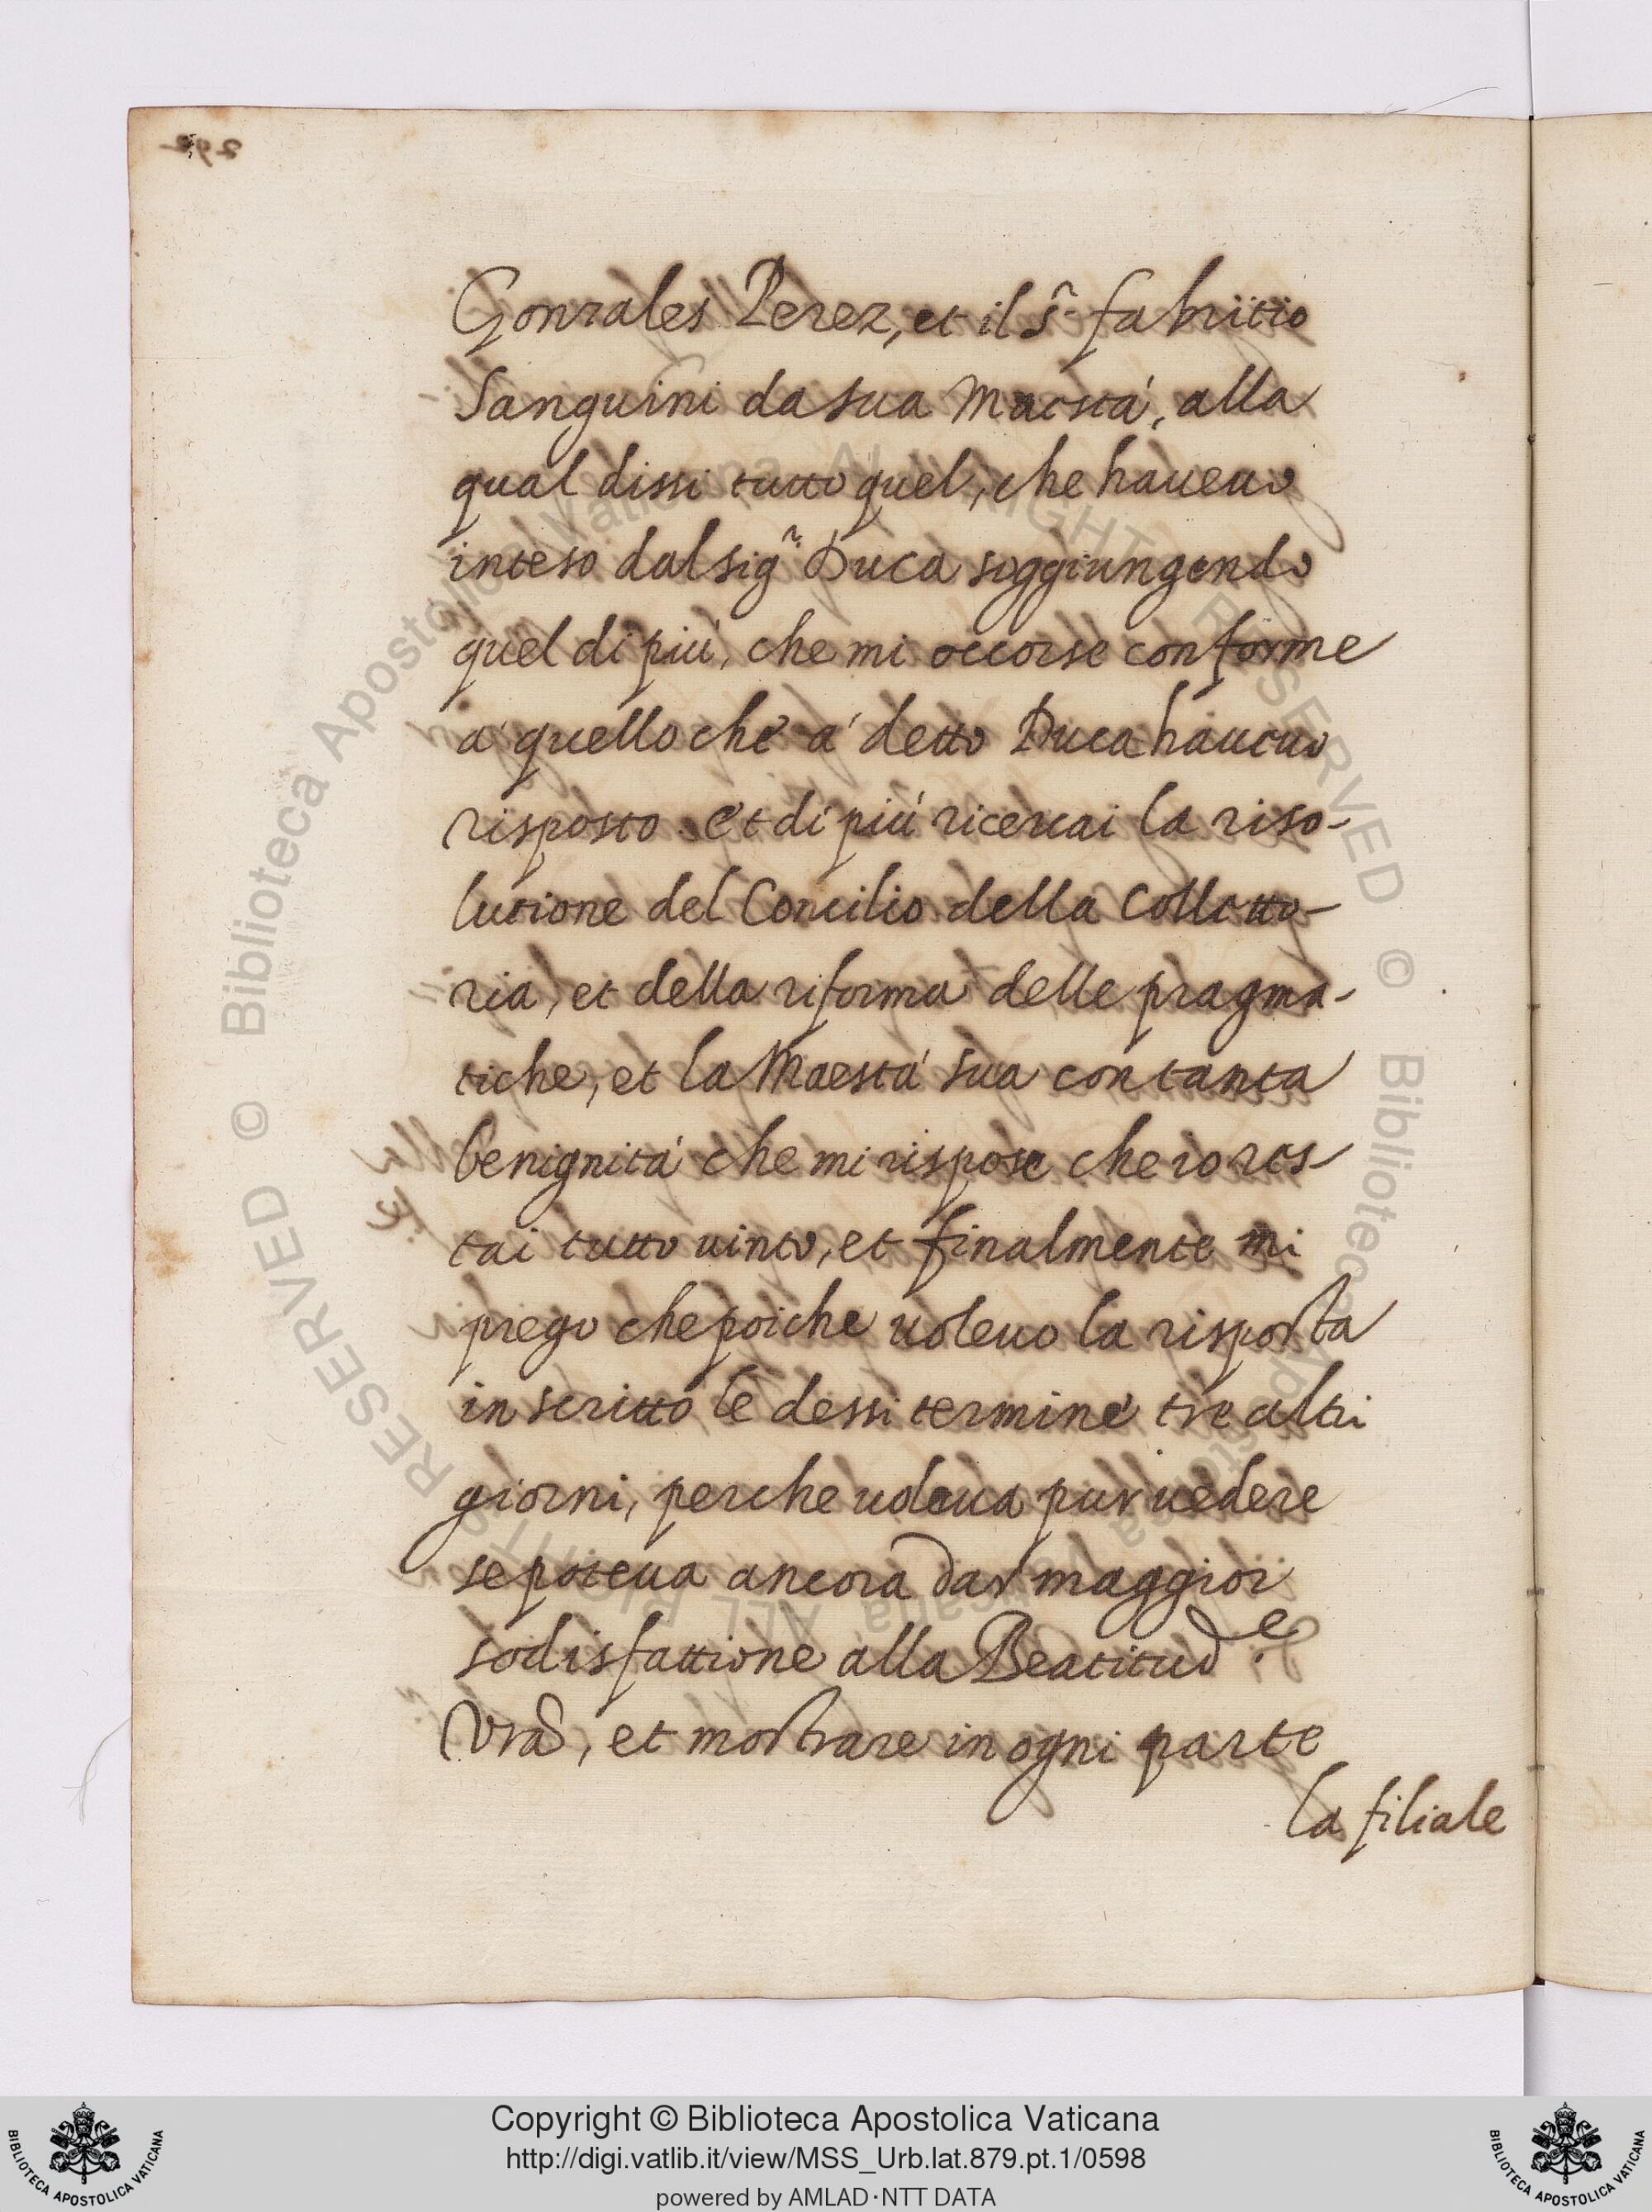 Gonzales Perez, et il s.r fabritio
Sanguini da sua Maestá, alla
qual dissi tutto quel, che haueuo
inteso dal sig.r Duca soggiungendo
quel di piú, che mi occorse conforme
á quello che á detto Duca haueuo
risposto et di piú ricercai la riso-
lutione del Concilio della Colletto-
ria, et della riforma delle pragma-
tiche, et la Maestá sua con tanta
benignitá che mi rispose che io res-
tai tutto uinto, et finalmente mi
prego che poiche uoleuo la risposta
in scritto le dessi termine tre altri
giorni, perche uoleua pur uedere
se poteua ancora dar maggior
sodisfattione alla Beatitud.e
Vra, et mostrare in ogni parte
la filiale
© Biblioteca Apostolica Vaticana ALL RIGHT RESERVED
© Biblioteca Apostolica Vaticana ALL RIGHT RESERVED
Copyright © Biblioteca Apostolica Vaticana
http://digi.vatlib.it/view/MSS_Urb.lat.879.pt.1/0598
powered by AMLAD·NTT DATA
BIBLIOTECA APOSTOLICA VATICANA
BIBLIOTECA APOSTOLICA VATICANA